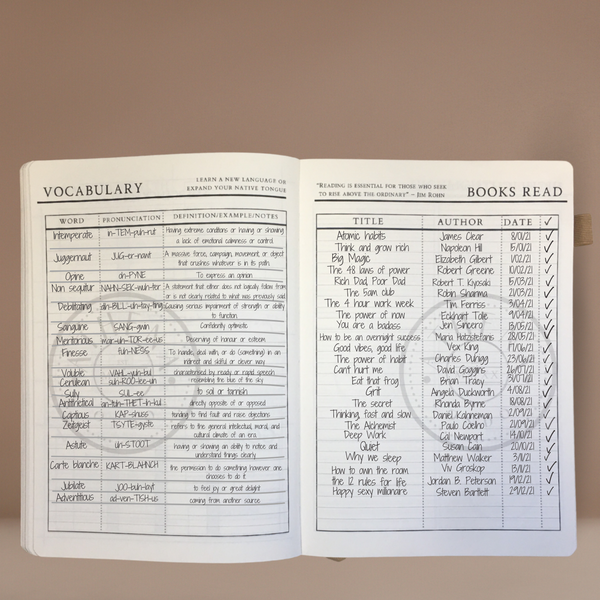 VOCABULARY
LEARN A NEW LANGUAGE OR
EXPAND YOUR NATIVE TONGUE
WORD PRONUNCIATION DEFINITION/EXAMPLE/NOTES
Intemperate in-TEM-puh-rut Having extreme conditions or having or showing
a lack of emotional calmness or control.
Juggernaut JUG-er-naut A massive force, campaign, movement, or object
that crushes whatever is in its path.
Opine oh-PYNE To express an opinion
Non sequitur NAHN-SEK-wuh-ter A statement that either does not logically follow from
or is not clearly related to what was previously said
Debilitating dih-BILL-uh-tay-ting Causing serious impairment of strength or ability
to function.
Sanguine SANG-gwin Confidently optimistic
Meritorious mair-uh-TOR-ee-us Deserving of honour or esteem.
Finesse fuh-NESS To handle, deal with, or do (something) in an
indirect and skilful or clever way.
Voluble VAHL-yuh-bul characterised by ready or rapid speech
Cerulean suh-ROO-lee-un resembling the blue of the sky
Sully SUL-ee to soil or tarnish
Antithetical an-tuh-THET-ih-kul directly opposite of or opposed
Captious KAP-shuss tending to find fault and raise objections
Zeitgeist TSYTE-gyste refers to the general intellectual, moral, and
cultural climate of an era.
Astute uh-STOOT having or showing an ability to notice and
understand things clearly.
Carte blanche KART-BLAHNCH the permission to do something however one
chooses to do it
Jubilate JOO-buh-layt to feel joy or great delight
Adventitious ad-ven-TISH-us coming from another source
"READING IS ESSENTIAL FOR THOSE WHO SEEK
TO RISE ABOVE THE ORDINARY" – JIM ROHN
BOOKS READ
TITLE AUTHOR DATE ✓
Atomic habits James Clear 8/01/21 ✓
Think and grow rich Napoleon Hill 15/01/21 ✓
Big Magic Elizabeth Gilbert 1/02/21 ✓
The 48 laws of power Robert Greene 10/02/21 ✓
Rich Dad, Poor Dad Robert T. Kiyosaki 15/03/21 ✓
The 5am club Robin Sharma 21/03/21 ✓
The 4 hour work week Tim Ferriss 3/04/21 ✓
The power of now Eckhart Tolle 9/04/21 ✓
You are a badass Jen Sincero 13/05/21 ✓
How to be an overnight success Maria Hatzistefanis 28/05/21 ✓
Good vibes, good life Vex King 17/06/21 ✓
The power of habit Charles Duhigg 23/06/21 ✓
Cant hurt me David Goggins 26/07/21 ✓
Eat that frog Brian Tracey 31/07/21 ✓
Grit Angela Duckworth 4/08/21 ✓
The secret Rhonda Byrne 18/08/21 ✓
Thinking, fast and slow Daniel Kahneman 2/09/21 ✓
The Alchemist Paulo Coelho 21/09/21 ✓
Deep Work Cal Newport 14/10/21 ✓
Quiet Susan Cain 20/10/21 ✓
Why we sleep Matthew Walker 3/11/21 ✓
How to own the room Viv Groskop 13/11/21 ✓
the 12 rules for life Jordan B. Peterson 19/12/21 ✓
Happy sexy millionaire Steven Bartlett 29/12/21 ✓